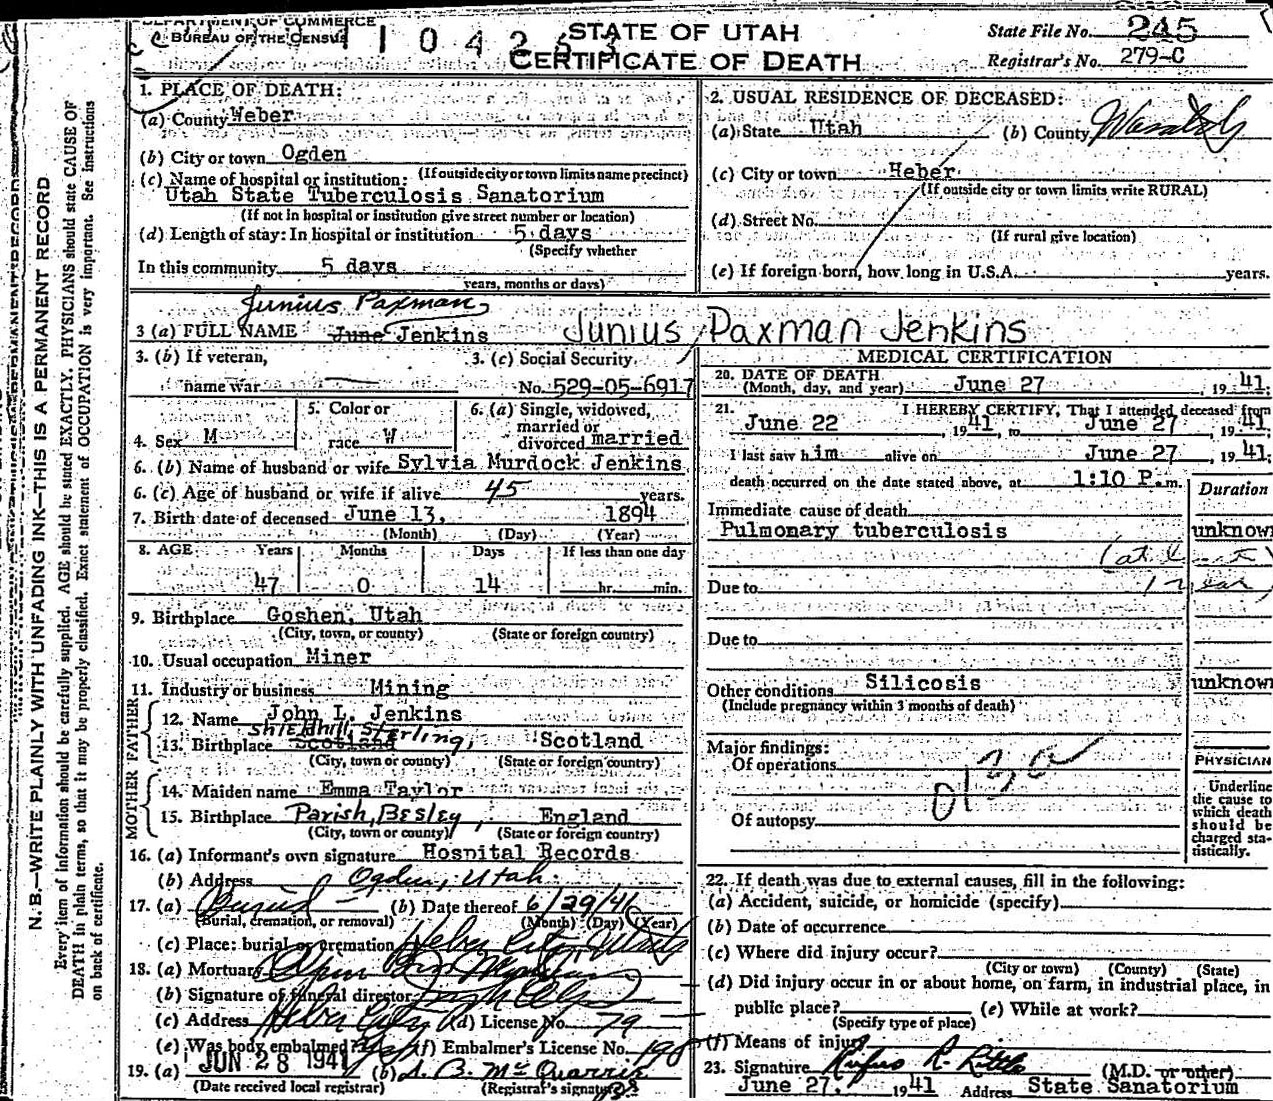 DEPARTMENT OF COMMERCE
BUREAU OF THE CENSUS
STATE OF UTAH
CERTIFICATE OF DEATH
State File No. 245
Registrar's No. 279-C
N. B.—WRITE PLAINLY WITH UNFADING INK—THIS IS A PERMANENT RECORD
Every item of information should be carefully supplied. AGE should be stated EXACTLY. PHYSICIANS should state CAUSE OF
DEATH in plain terms, so that it may be properly classified. Exact statement of OCCUPATION is very important. See instructions
on back of certificate.
1. PLACE OF DEATH:
(a) County Weber
(b) City or town Ogden
(If outside city or town limits name precinct)
(c) Name of hospital or institution:
Utah State Tuberculosis Sanatorium
(If not in hospital or institution give street number or location)
(d) Length of stay: In hospital or institution 5 days
(Specify whether
In this community 5 days
years, months or days)
2. USUAL RESIDENCE OF DECEASED:
(a) State Utah (b) County Wasatch
(c) City or town Heber
(If outside city or town limits write RURAL)
(d) Street No.
(If rural give location)
(e) If foreign born, how long in U.S.A. years.
Junius Paxman
3 (a) FULL NAME June Jenkins Junius Paxman Jenkins
3. (b) If veteran,
name war
3. (c) Social Security
No. 529-05-6917
4. Sex M
5. Color or
race W
6. (a) Single, widowed,
married or
divorced married
6. (b) Name of husband or wife Sylvia Murdock Jenkins
6. (c) Age of husband or wife if alive 45 years.
7. Birth date of deceased June 13, 1894
(Month) (Day) (Year)
8. AGE Years Months Days If less than one day
47 0 14 hr. min.
9. Birthplace Goshen, Utah
(City, town, or county) (State or foreign country)
10. Usual occupation Miner
11. Industry or business Mining
FATHER
12. Name John L. Jenkins
Shieldhill, Sterling,
13. Birthplace Scotland Scotland
(City, town or county) (State or foreign country)
MOTHER
14. Maiden name Emma Taylor
15. Birthplace Parish, Besley, England
(City, town or county) (State or foreign country)
16. (a) Informant's own signature Hospital Records
(b) Address Ogden, Utah
17. (a) Burial (b) Date thereof 6/29/41
(Burial, cremation, or removal) (Month) (Day) (Year)
(c) Place: burial or cremation Heber City, Utah
18. (a) Mortuary
(b) Signature of funeral director
(c) Address Heber City (d) License No. 79
(e) Was body embalmed? (f) Embalmer's License No. 190
19. (a) JUN 28 1941 (b) L. B. McQuarrie
(Date received local registrar) (Registrar's signature)
MEDICAL CERTIFICATION
20. DATE OF DEATH
(Month, day, and year) June 27, 1941;
21. I HEREBY CERTIFY, That I attended deceased from
June 22, 1941, to June 27, 1941;
I last saw him alive on June 27, 1941;
death occurred on the date stated above, at 1:10 P.m.
Duration
Immediate cause of death
Pulmonary tuberculosis unknown
(at least
1 year)
Due to
Due to
Other conditions Silicosis unknown
(Include pregnancy within 3 months of death)
Major findings:
Of operations
Of autopsy
PHYSICIAN
Underline
the cause to
which death
should be
charged sta-
tistically.
22. If death was due to external causes, fill in the following:
(a) Accident, suicide, or homicide (specify)
(b) Date of occurrence
(c) Where did injury occur?
(City or town) (County) (State)
(d) Did injury occur in or about home, on farm, in industrial place, in
public place? (e) While at work?
(Specify type of place)
(f) Means of injury
23. Signature Rufus R. Little (M.D. or other)
June 27, 1941 Address State Sanatorium